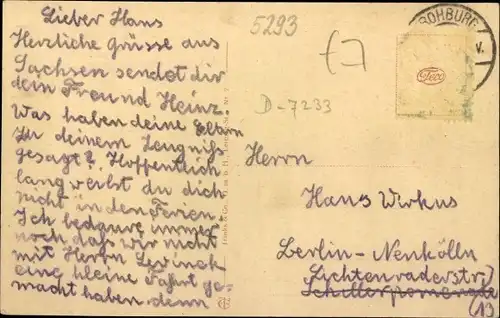 Lieber Hans
Herzliche grüsse aus
Sachsen sendet dir
dein Freund Heinz.
Was haben deine Eltern
zu deinem Zeugniss
gesagt? Hoffentlich
langweilst du dich
nicht in den Ferien.
Ich bedaure immer
noch daß wir nicht
mit Herrn Levinek
eine kleine Fahrt ge-
macht haben, denn
5293
D-7233
ROHBURG
V.
Herrn
Hans Wirkus
Berlin-Neukölln
Lichtenraderstr. 7
Schillerpromenade
(13)